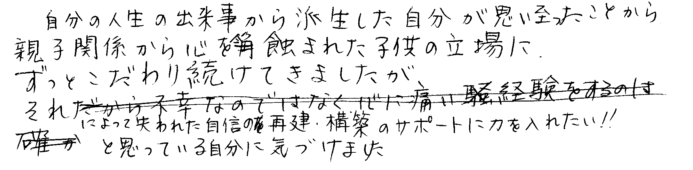 自分の人生の出来事から派生した自分が思い至ったことから
親子関係から心を蝕まれた子供の立場に
ずっとこだわり続けてきましたが、
それだから不幸なのではなく心に痛い経験をするのは
によって失われた自信の再建・構築のサポートに力を入れたい!!
確か と思っている自分に気づけました